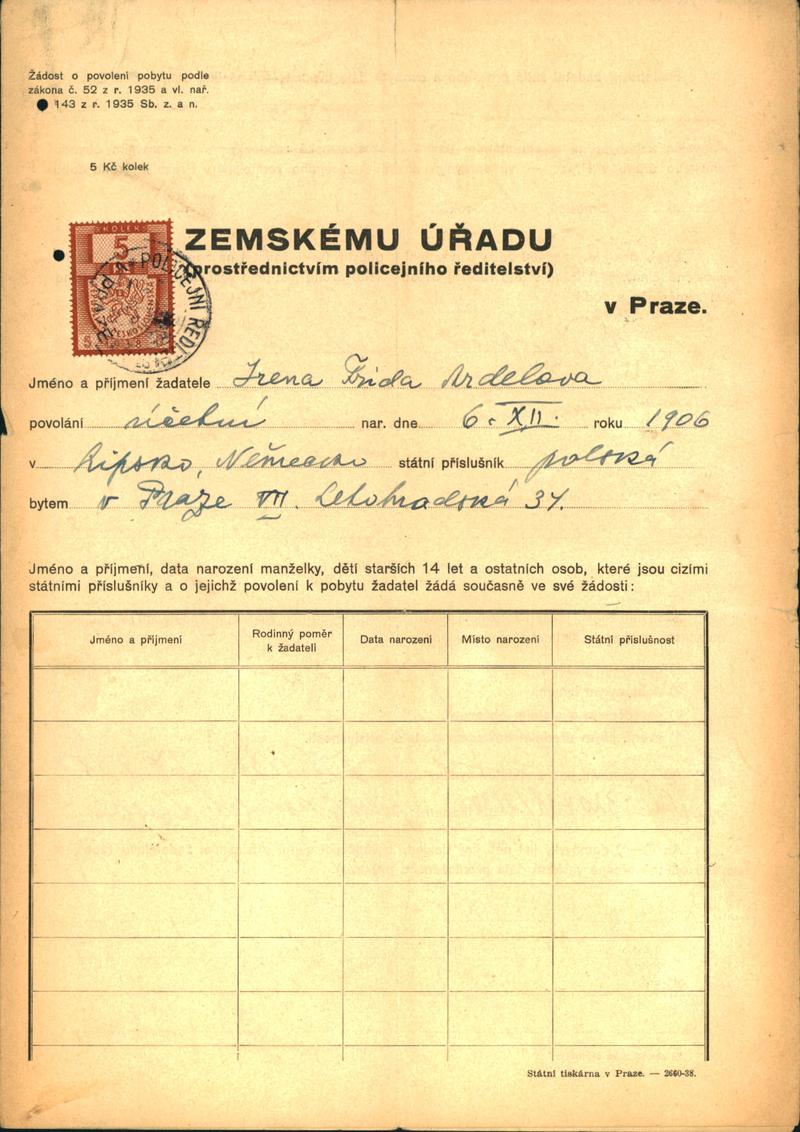 Žádost o povolení pobytu podle
zákona č. 52 z r. 1935 a vl. nař.
143 z r. 1935 Sb. z. a n.
5 Kč kolek
KOLEK
5
ZEMSKÉMU ÚŘADU
(prostřednictvím policejního ředitelství)
v Praze.
POLICEJNÍ ŘEDI
Jméno a příjmení žadatele Irena Frida Ardelova
povolání účetní nar. dne 6. XII. roku 1906
v Lipsko, Německo státní příslušník polská
bytem v Praze VII. Letohradská 34.
Jméno a příjmení, data narození manželky, dětí starších 14 let a ostatních osob, které jsou cizími
státními příslušníky a o jejichž povolení k pobytu žadatel žádá současně ve své žádosti:
Jméno a příjmení
Rodinný poměr
k žadateli
Data narození
Místo narození
Státní příslušnost
Státní tiskárna v Praze. — 2660-38.